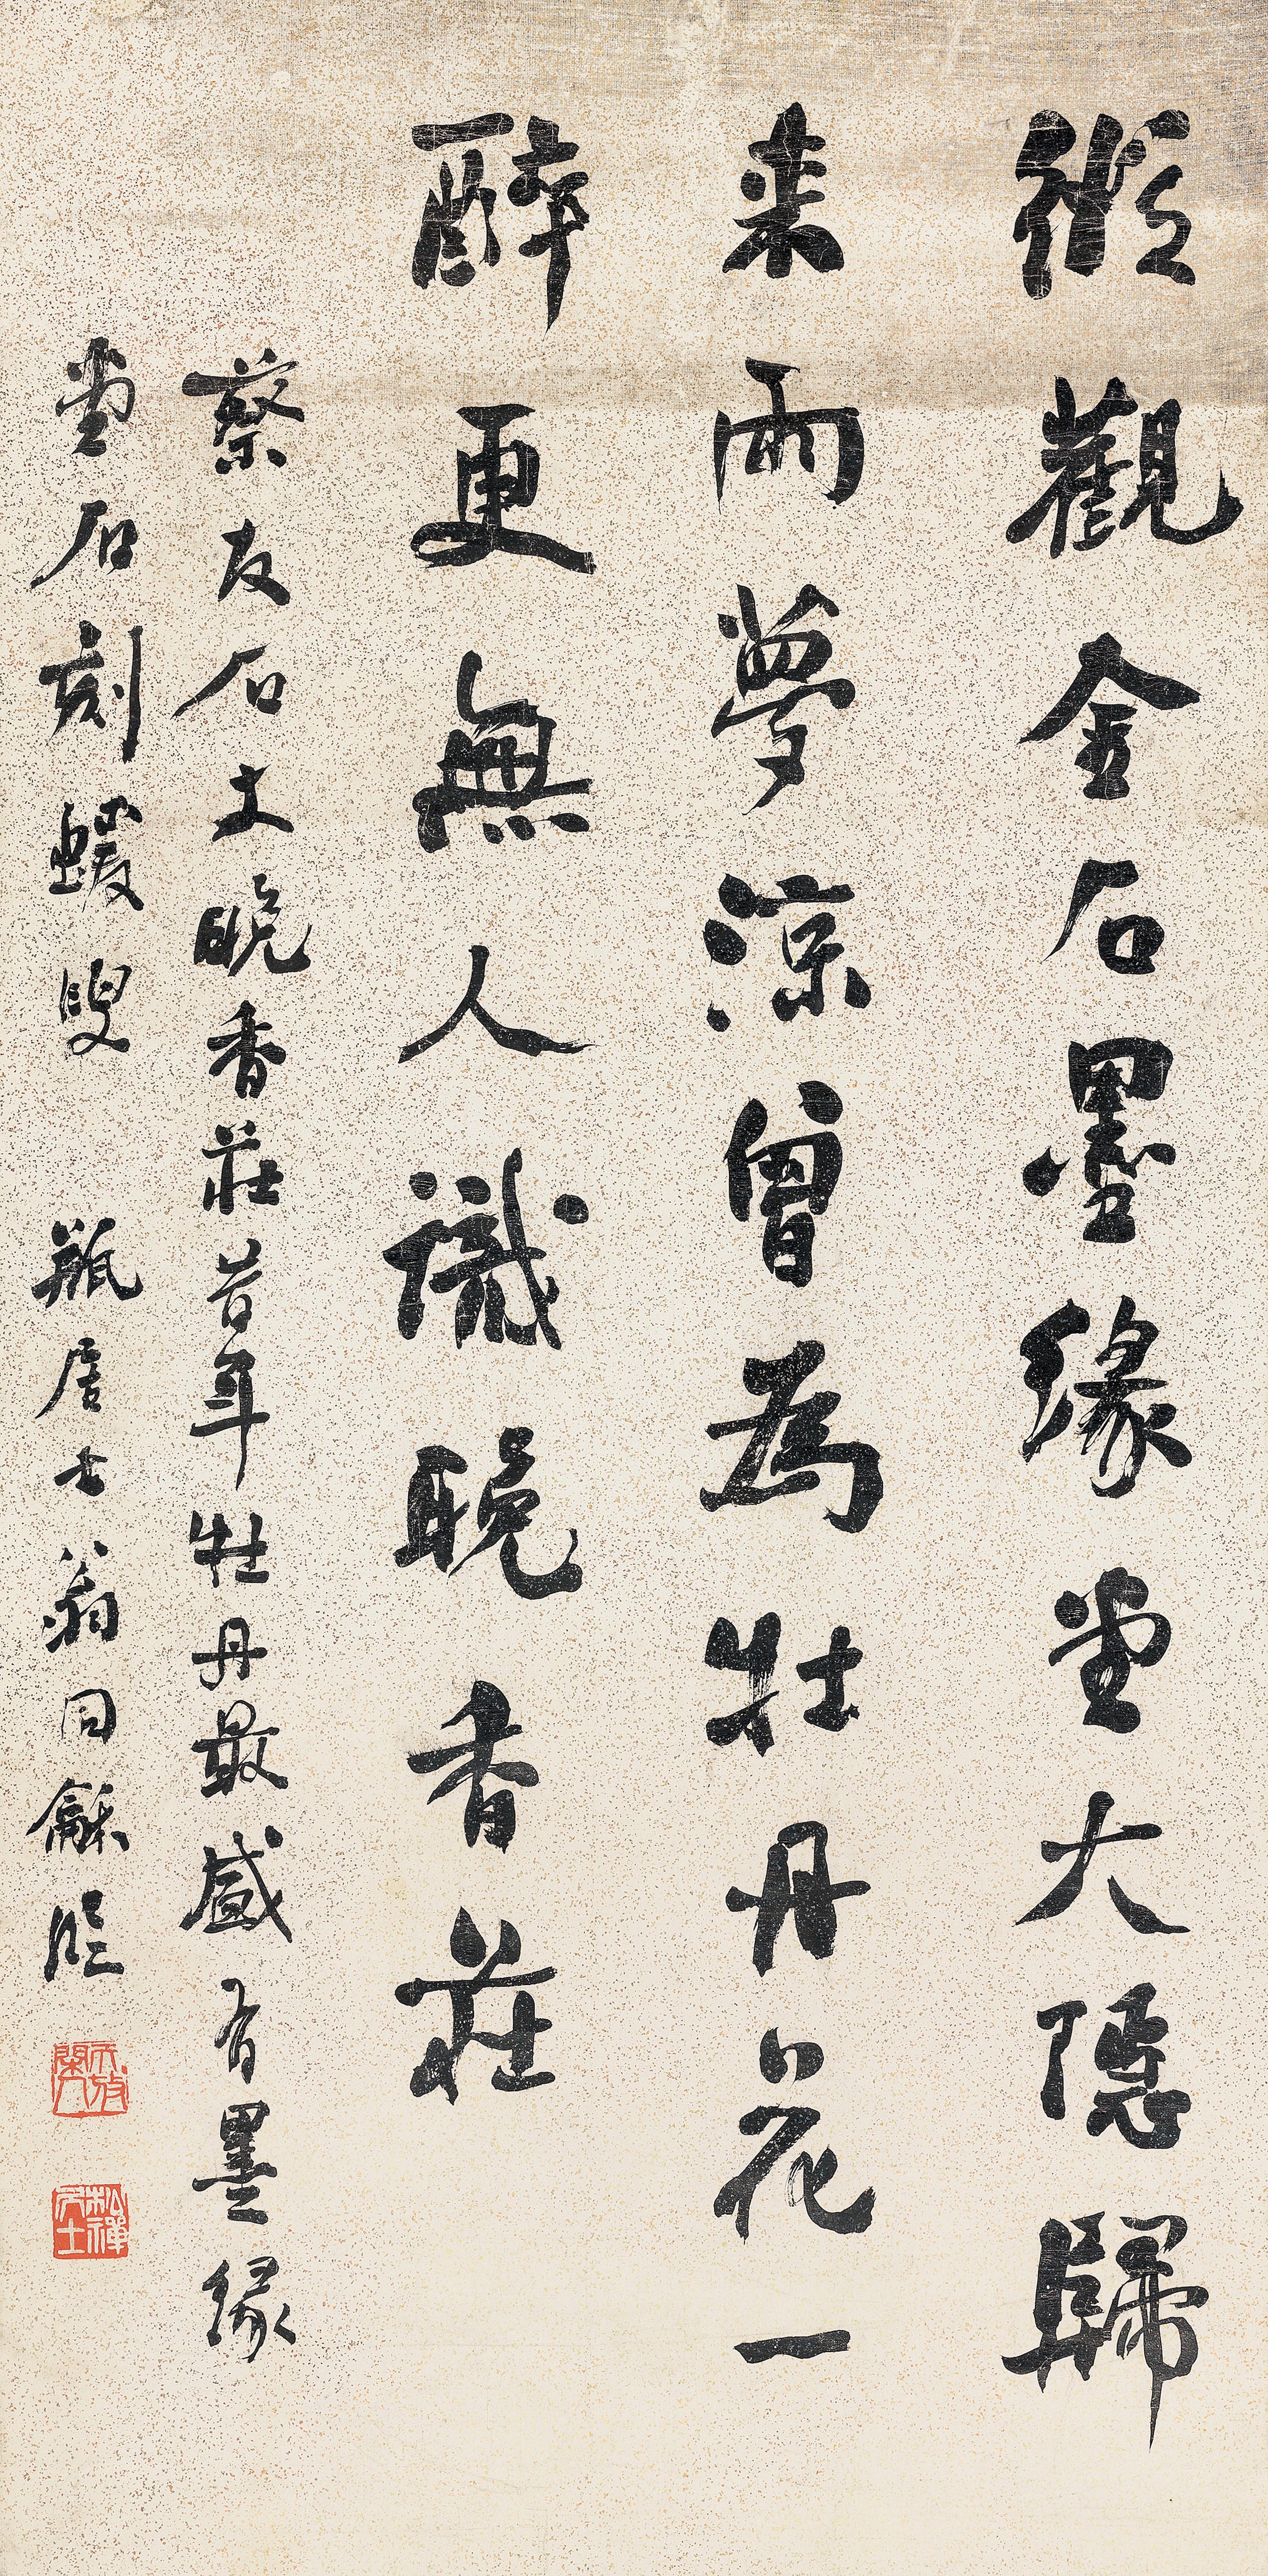 縱觀金石墨緣堂大隱歸
來雨夢涼曾為牡丹花一
醉更無人識晚香莊
蔡友石丈晚香莊昔年牡丹最盛有墨緣
堂石刻蝯叟 瓶居士翁同龢臨
松禪居士